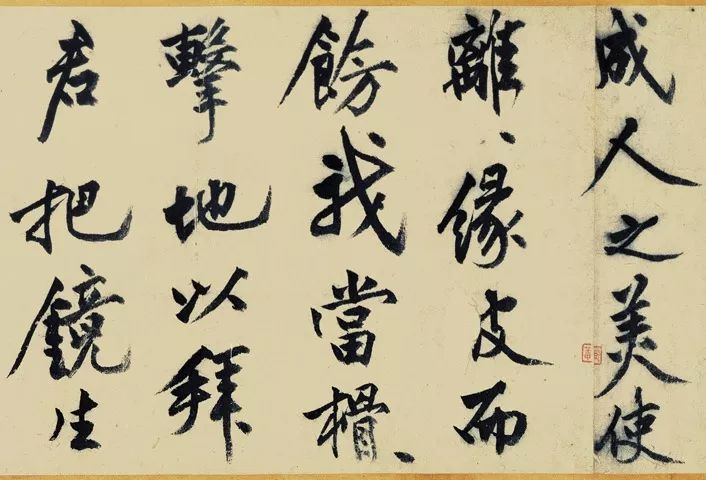 成人之美使
離、緣皮而
餝我當榾、
擊地以拜
君把鏡生